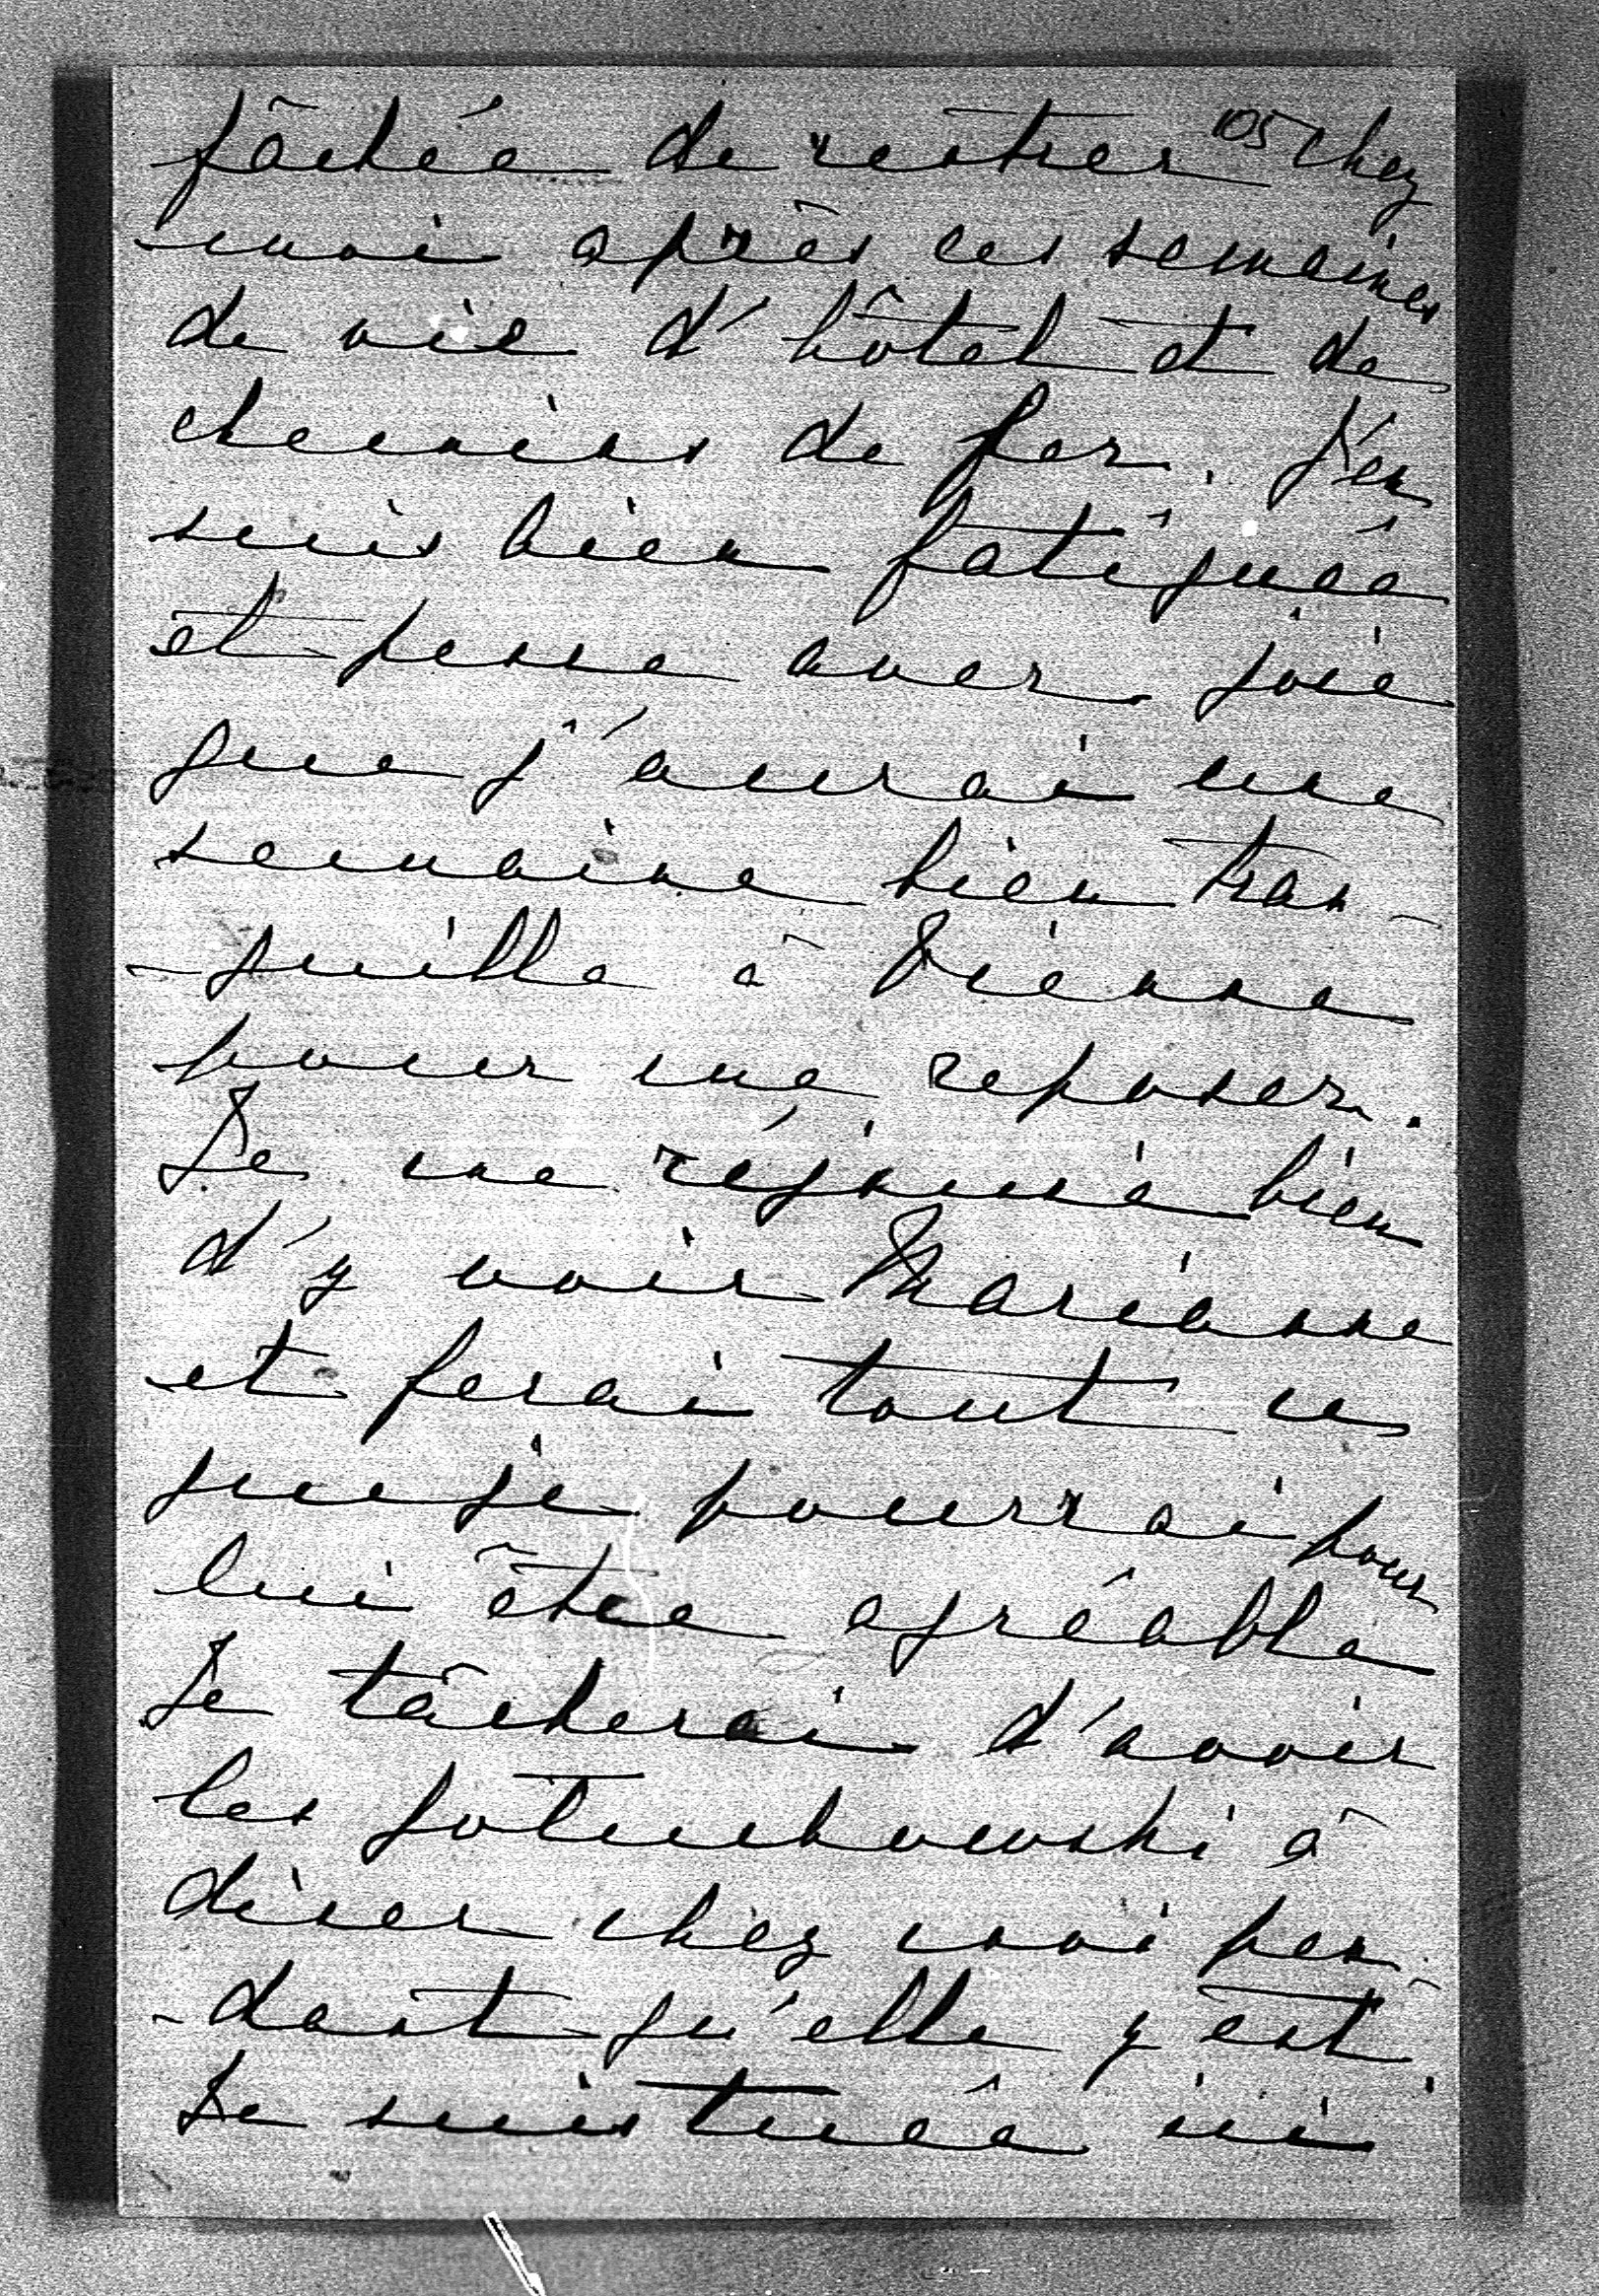 105
fâchée de rentrer chez
moi après ces semaines
de vie d'hôtel et de
chemins de fer. J'en
suis bien fatiguée
et pense avec joie
que j'aurai une
semaine bien tran-
-quille à Vienne
pour me reposer.
Je me réjouis bien
d'y voir Marianne
et ferai tout ce
que je pourrai pour
lui être agréable
Je tâcherai d'avoir
les Gotuchowski à
dîner chez moi pen-
-dant qu'elle y est.
Je suis tuée ici